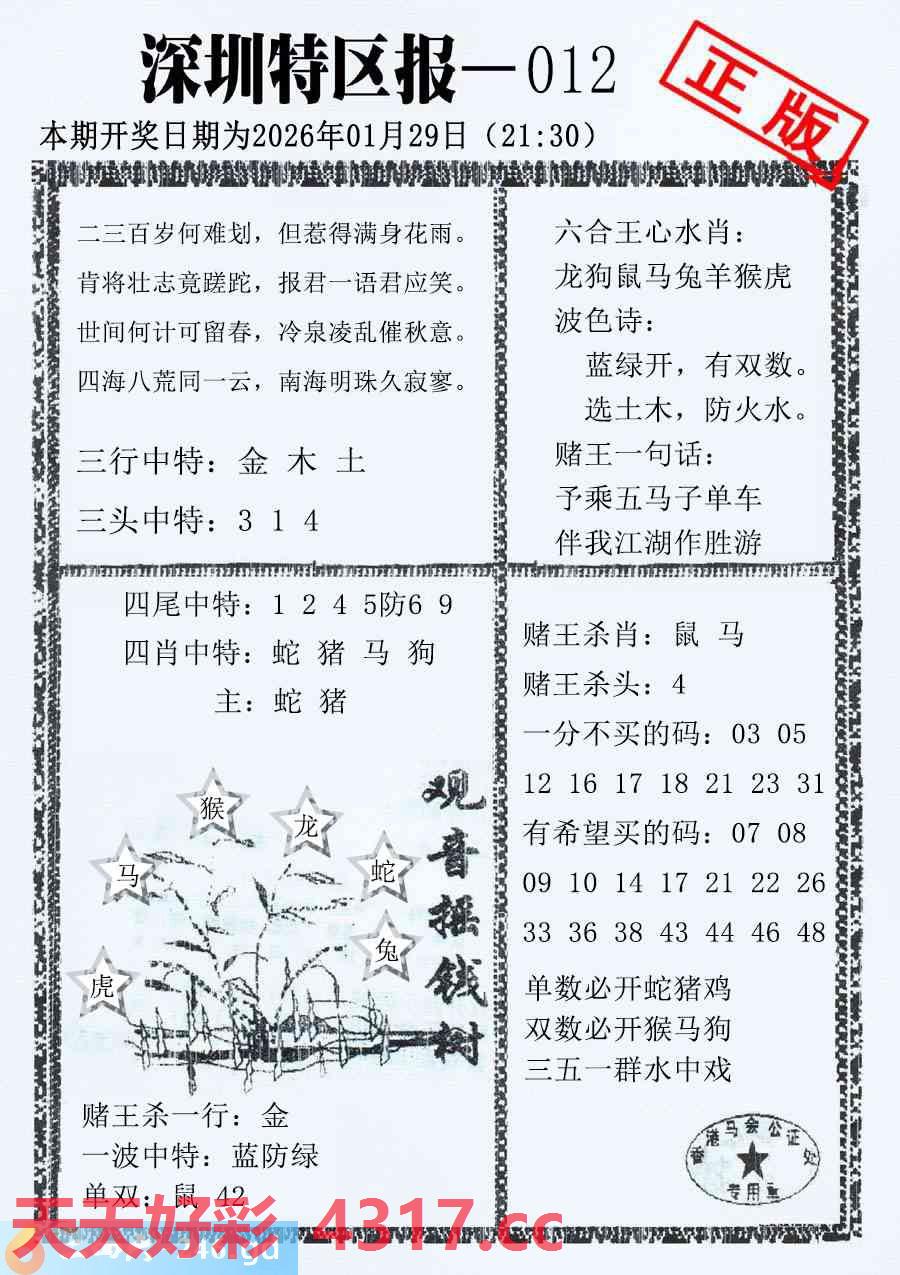 深圳特区报—012
正版
本期开奖日期为2026年01月29日（21:30）
二三百岁何难划，但惹得满身花雨。
肯将壮志竟蹉跎，报君一语君应笑。
世间何计可留春，冷泉凌乱催秋意。
四海八荒同一云，南海明珠久寂寥。
三行中特：金 木 土
三头中特：3 1 4
六合王心水肖：
龙狗鼠马兔羊猴虎
波色诗：
蓝绿开，有双数。
选土木，防火水。
赌王一句话：
予乘五马子单车
伴我江湖作胜游
四尾中特：1 2 4 5防6 9
四肖中特：蛇 猪 马 狗
主：蛇 猪
观音摇钱树
猴
龙
马
蛇
兔
虎
赌王杀一行：金
一波中特：蓝防绿
单双：鼠 42
赌王杀肖：鼠 马
赌王杀头：4
一分不买的码：03 05
12 16 17 18 21 23 31
有希望买的码：07 08
09 10 14 17 21 22 26
33 36 38 43 44 46 48
单数必开蛇猪鸡
双数必开猴马狗
三五一群水中戏
香港马会公证处
专用章
天天好彩 4317.cc